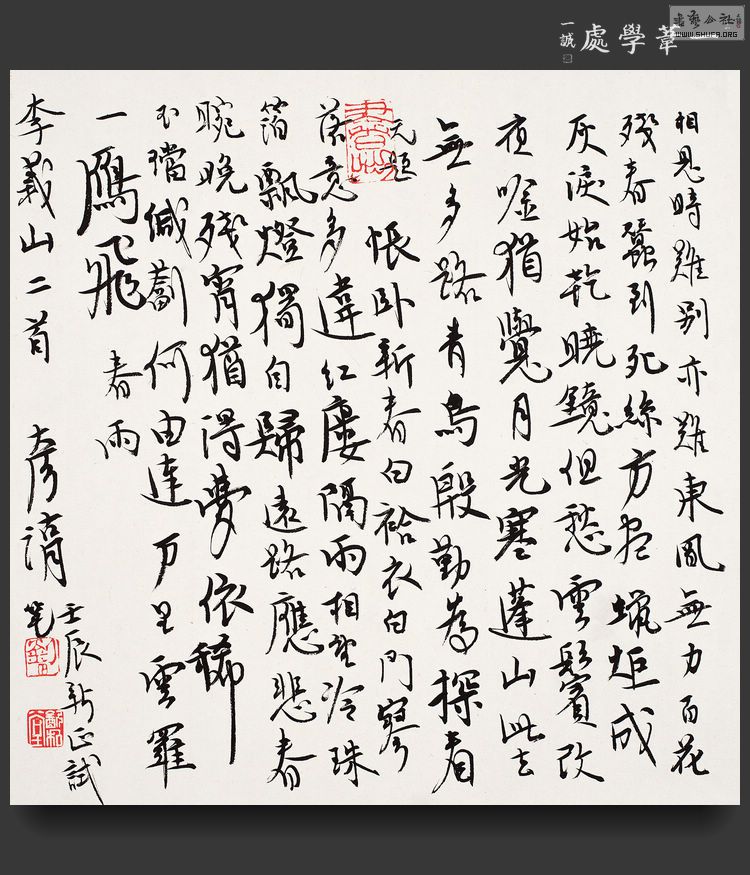 書藝公社
WWW.SHUFA.ORG
一葦學處
一誠
相見時難別亦難東風無力百花
殘春蠶到死絲方盡蠟炬成
灰淚始乾曉鏡但愁雲鬢改
夜唫猶覺月光寒蓬山此去
無多路青鳥殷勤為探看
无題
悵卧新春白袷衣白門寥
落意多違紅樓隔雨相望冷珠
箔飄燈獨自歸遠路應悲春
晼晚殘宵猶得夢依稀
玉璫緘劄何由達万里雲羅
一鴈飛 春雨
李義山二首
壬辰新正試
笔